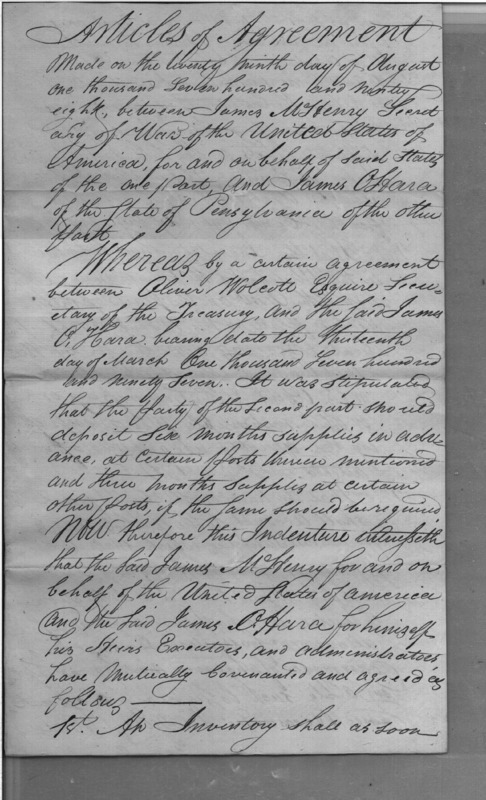 Articles of Agreement
Made on the twenty ninth day of August
one thousand Seven hundred and ninety
eight, between James McHenry Secret
ary of War of the United States of
America, for and on behalf of said States
of the one Part, And James O'Hara
of the State of Pensylvania of the other
Part,
Whereas by a certain agreement
between Oliver Wolcott Esquire Secre-
etary of the Treasury, and the said James
O'Hara bearing date the thirteenth
day of March One thousand seven hundred
and ninety seven.. It was stipulated
that the Party of the second part should
deposit six months supplies in adv
ance, at certain Posts therein mentioned
and three months supplies at certain
other Posts, if the same should be required
Now therefore this Indenture witnesseth
that the said James McHenry for and on
behalf of the United States of america
and the said James O'Hara for himself
his Heirs Executors, and administrators
have Mutically Covenanted and agreed as
follows
1st. An Inventory shall as soon